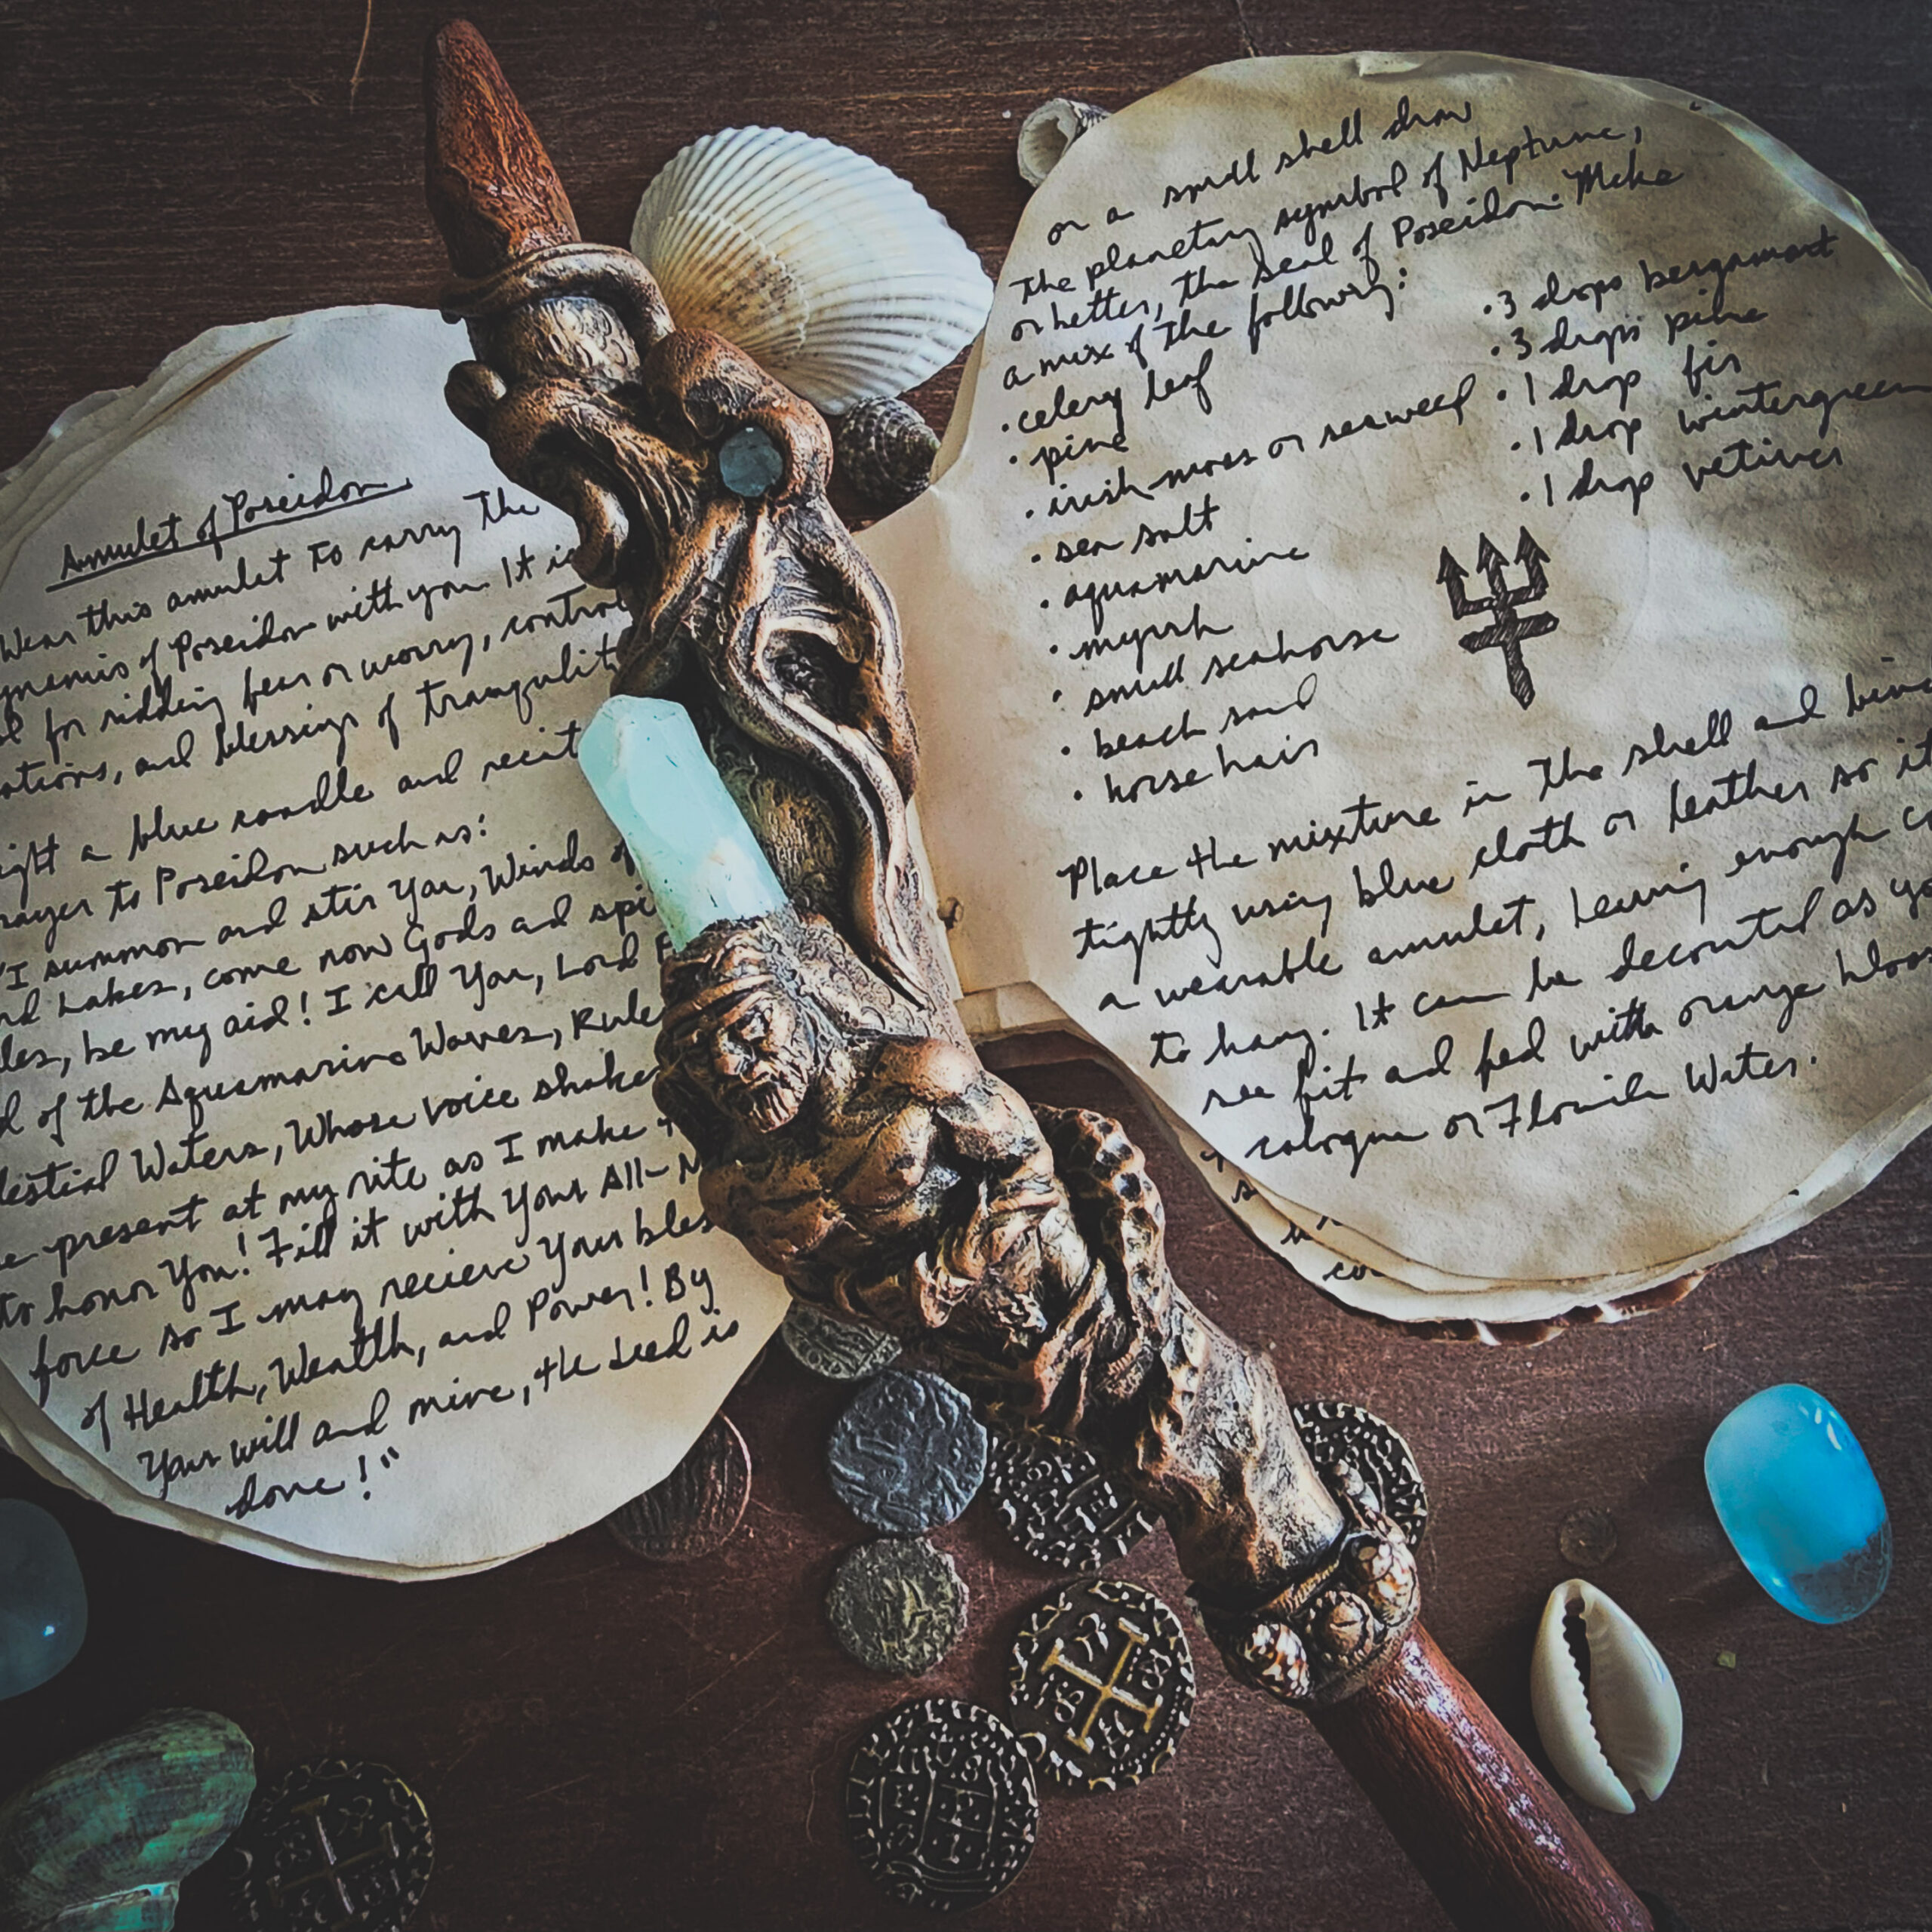 Amulet of Poseidon
Wear this amulet to carry the
of Poseidon with you. It is
for ridding fear or worry, control
and blessings of tranquilit
a blue candle and recit
to Poseidon such as:
"I summon and stir You, Winds of
Lakes, come now Gods ad spi
be my aid! I call You, Lord
of the Aquamarine Waves, Rule
Waters, Whose voice shake
present at my rite as I make
to honor You! Fill it with Your All-M
force so I may recieve Your bles
of Health, Wealth, and Power! By
Your will and mine, the deed is
done!"
on a small shell draw
the planetary symbol of Neptune,
or better, the seal of Poseidon. Make
a mix of the following:
• celery leaf
• pine
• irish moss or seaweed
• sea salt
• aquamarine
• myrrh
• small seahorse
• beach sand
• horse hair
• 3 drops bergamont
• 3 drops pine
• 1 drop fir
• 1 drop wintergreen
• 1 drop vetiver
Place the mixture in the shell and bind
tightly using blue cloth or leather so it
a wearable amulet, leaving enough
to hang. It can be decorated as yo
see fit and fed with orange bloss
cologne or Florida Water.